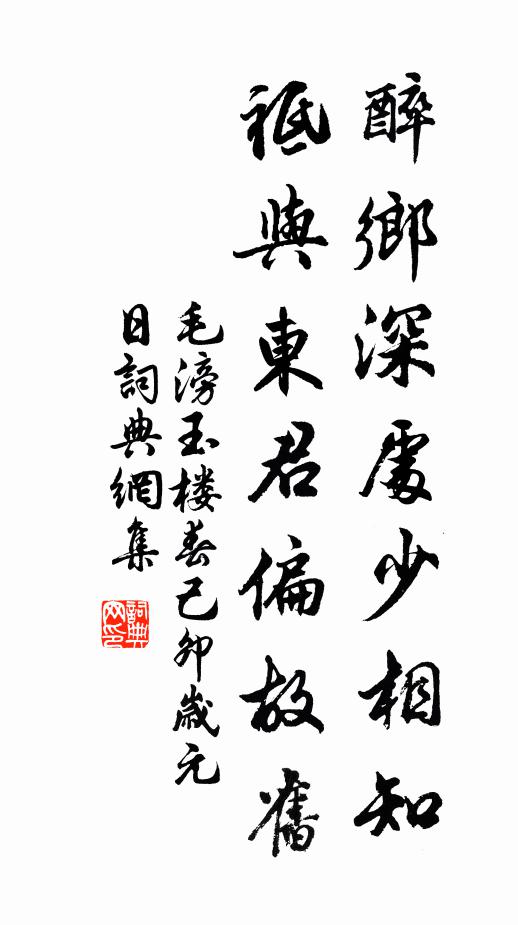 醉鄉深處少相知
祗與東君偏故舊
毛滂玉楼春己卯歲元
日詞典網集
詞典
网印